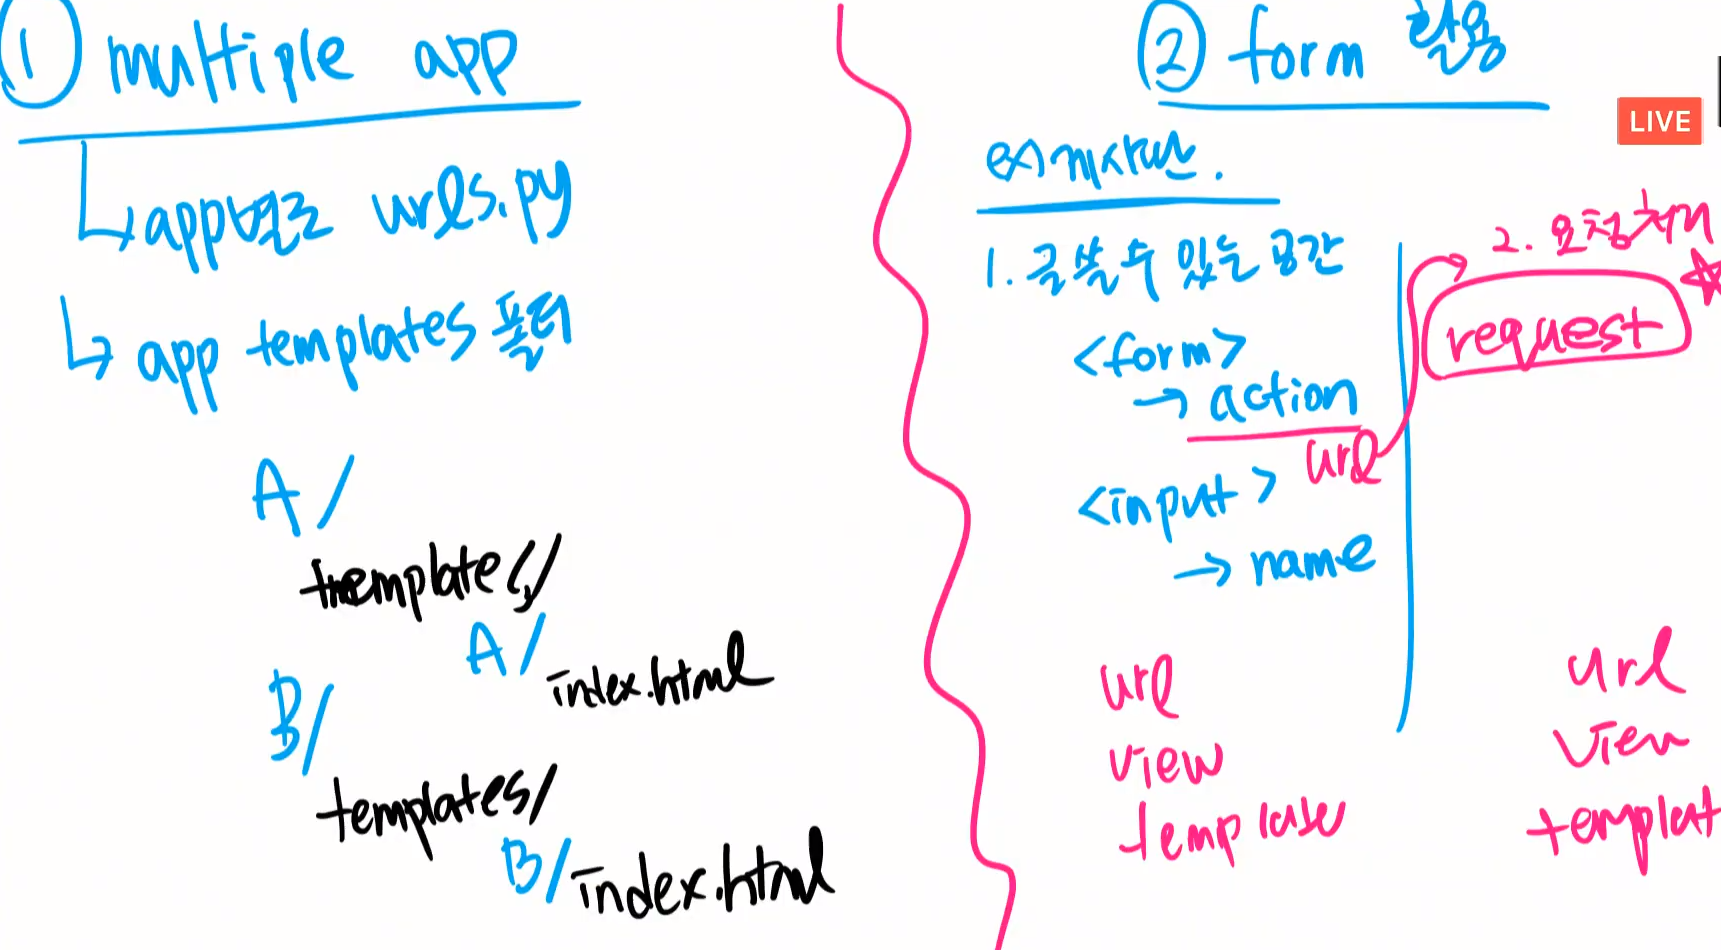 ① multiple app
↳ app별로 urls.py
↳ app templates 폴더
A/
templates/
A/
index.html
B/
templates/
B/index.html
② form 활용
ex) 게시판.
1. 글 쓸 수 있는 공간
<form>
→ action
url
<input>
→ name
url
view
template
LIVE
2. 요청처리
request
url
view
templat